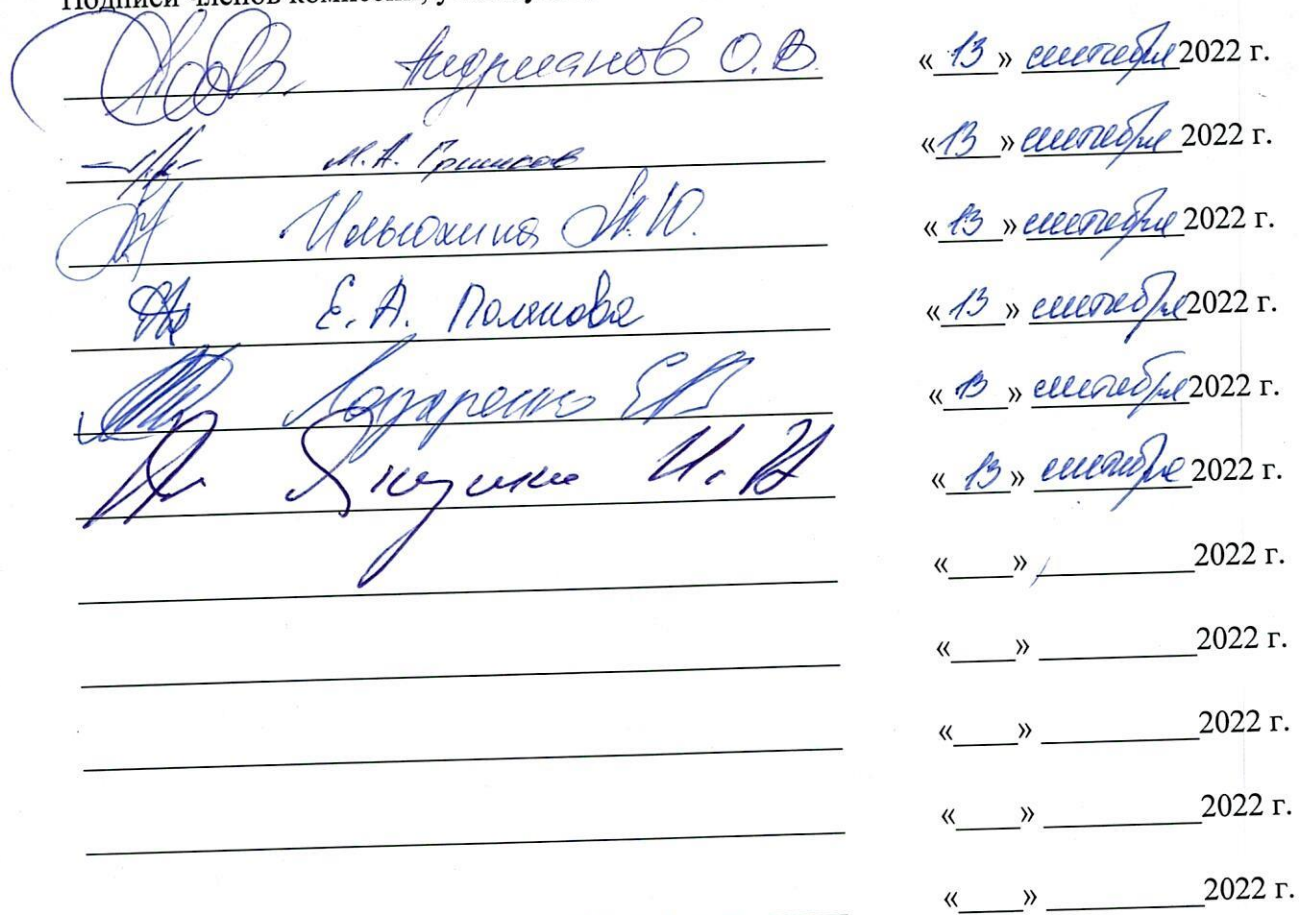 Подписи членов комиссии,
Андрианов О.В. « 13 » сентября 2022 г.
М.А. « 13 » сентября 2022 г.
Ильюхина М.Ю. « 13 » сентября 2022 г.
Е.А. Полякова « 13 » сентября 2022 г.
Лазаренко Е.В. « 13 » сентября 2022 г.
« 13 » сентября 2022 г.
«____» __________ 2022 г.
«____» __________ 2022 г.
«____» __________ 2022 г.
«____» __________ 2022 г.
«____» __________ 2022 г.